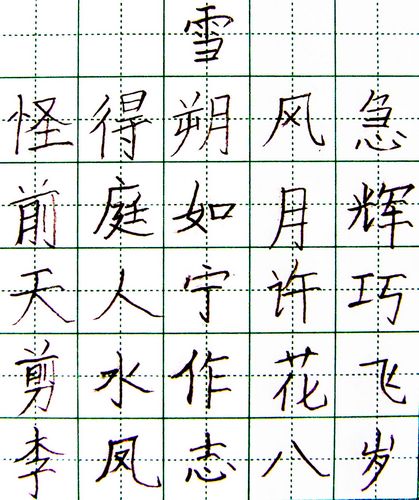 雪
怪得朔风急
前庭如月辉
天人宁许巧
剪水作花飞
李凤志八岁